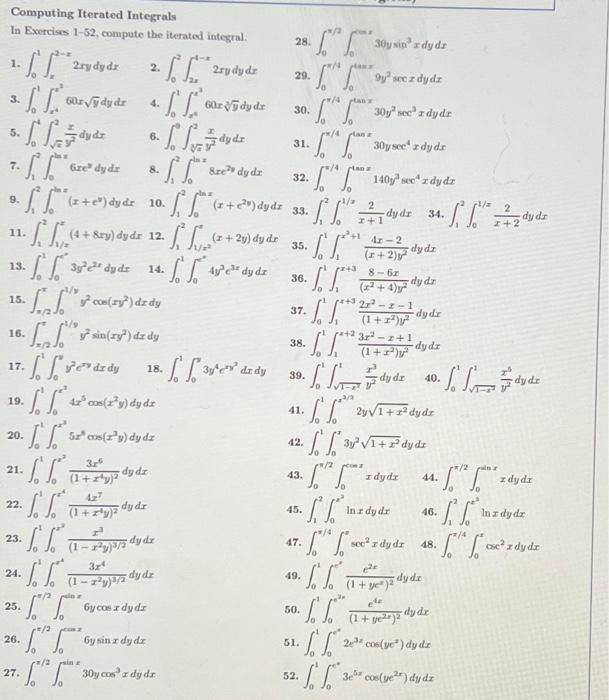 Computing Iterated Integrals
In Exercises 1–52, compute the iterated integral.
1. ∫_0^1 ∫_x^{2−x} 2xy dy dx 2. ∫_0^2 ∫_{2x}^{4−x} 2xy dy dx
3. ∫_0^1 ∫_{x^4}^{x^2} 60x√y dy dx 4. ∫_0^1 ∫_{x^6}^{x^3} 60x ∛y dy dx
5. ∫_0^4 ∫_{√x}^2 x/y² dy dx 6. ∫_0^8 ∫_{∛x}^2 x/y² dy dx
7. ∫_1^2 ∫_0^{ln x} 6xe^y dy dx 8. ∫_1^2 ∫_0^{ln x} 8xe^{2y} dy dx
9. ∫_1^2 ∫_0^{ln x} (x + e^y) dy dx 10. ∫_1^2 ∫_0^{ln x} (x + e^{2y}) dy dx
11. ∫_1^2 ∫_{1/x}^x (4 + 8xy) dy dx 12. ∫_1^2 ∫_{1/x²}^x (x + 2y) dy dx
13. ∫_0^1 ∫_0^{e^x} 3y²e^{2x} dy dx 14. ∫_0^1 ∫_0^{e^x} 4y³e^{3x} dy dx
15. ∫_{π/2}^π ∫_0^{1/y} y² cos(xy²) dx dy
16. ∫_{π/2}^π ∫_0^{1/y} y² sin(xy²) dx dy
17. ∫_0^1 ∫_0^y y²e^{xy} dx dy 18. ∫_0^1 ∫_0^y 3y⁴e^{xy²} dx dy
19. ∫_0^1 ∫_0^{x²} 4x⁵ cos(x²y) dy dx
20. ∫_0^1 ∫_0^{x²} 5x⁸ cos(x³y) dy dx
21. ∫_0^1 ∫_0^{x³} 3x⁶/(1 + x⁴y)² dy dx
22. ∫_0^1 ∫_0^{x⁴} 4x⁷/(1 + x⁴y)² dy dx
23. ∫_0^1 ∫_0^{x²} x³/(1 − x²y)^{3/2} dy dx
24. ∫_0^1 ∫_0^{x³} 3x⁴/(1 − x²y)^{3/2} dy dx
25. ∫_0^{π/2} ∫_0^{sin x} 6y cos x dy dx
26. ∫_0^{π/2} ∫_0^{cos x} 6y sin x dy dx
27. ∫_0^{π/2} ∫_0^{sin x} 30y cos³ x dy dx
28. ∫_0^{π/2} ∫_0^{cos x} 30y sin³ x dy dx
29. ∫_0^{π/4} ∫_0^{tan x} 9y² sec x dy dx
30. ∫_0^{π/4} ∫_0^{tan x} 30y² sec³ x dy dx
31. ∫_0^{π/4} ∫_0^{tan x} 30y sec⁴ x dy dx
32. ∫_0^{π/4} ∫_0^{tan x} 140y³ sec⁴ x dy dx
33. ∫_1^2 ∫_0^{1/x} 2/(x + 1) dy dx 34. ∫_1^2 ∫_0^{1/x} 2/(x + 2) dy dx
35. ∫_0^1 ∫_1^{x²+1} (4x − 2)/((x + 2)y²) dy dx
36. ∫_0^1 ∫_1^{x+3} (8 − 6x)/((x² + 4)y²) dy dx
37. ∫_0^1 ∫_1^{x+3} (2x² − x − 1)/((1 + x²)y²) dy dx
38. ∫_0^1 ∫_1^{x+2} (3x² − x + 1)/((1 + x²)y²) dy dx
39. ∫_0^1 ∫_{√(1−x²)}^1 x³/y² dy dx 40. ∫_0^1 ∫_{√(1−x²)}^1 x⁵/y² dy dx
41. ∫_0^1 ∫_0^{x^{3/2}} 2y√(1 + x²) dy dx
42. ∫_0^1 ∫_0^x 3y²√(1 + x²) dy dx
43. ∫_0^{π/2} ∫_0^{cos x} x dy dx 44. ∫_0^{π/2} ∫_0^{sin x} x dy dx
45. ∫_1^2 ∫_0^{x³} ln x dy dx 46. ∫_1^2 ∫_0^{x²} ln x dy dx
47. ∫_0^{π/4} ∫_0^x sec² x dy dx 48. ∫_0^{π/4} ∫_0^x csc² x dy dx
49. ∫_0^1 ∫_0^{e^x} e^{2x}/(1 + ye^x)² dy dx
50. ∫_0^1 ∫_0^{e^{2x}} e^{4x}/(1 + ye^{2x})² dy dx
51. ∫_0^1 ∫_0^{e^x} 2e^{3x} cos(ye^x) dy dx
52. ∫_0^1 ∫_0^{e^x} 3e^{5x} cos(ye^{2x}) dy dx